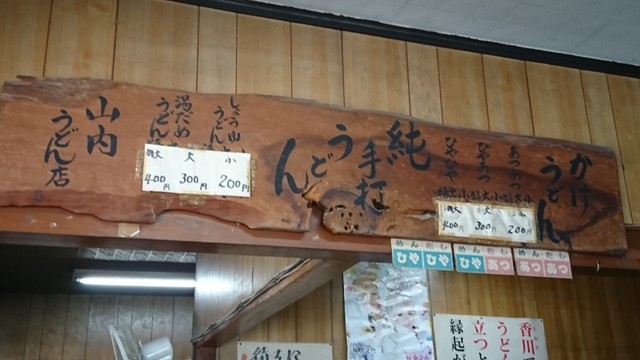 かけ
うどん
あつあつ
ひやあつ
ひやひや
特大
大
小
400円
300円
200円
純
手打
うどん
しょうゆ
うどん
湯だめ
うどん
特大
大
小
400円
300円
200円
山内
うどん店
めん だし
ひや ひや
めん だし
ひや あつ
めん だし
あつ あつ
香川
うどん
立つと
縁起が